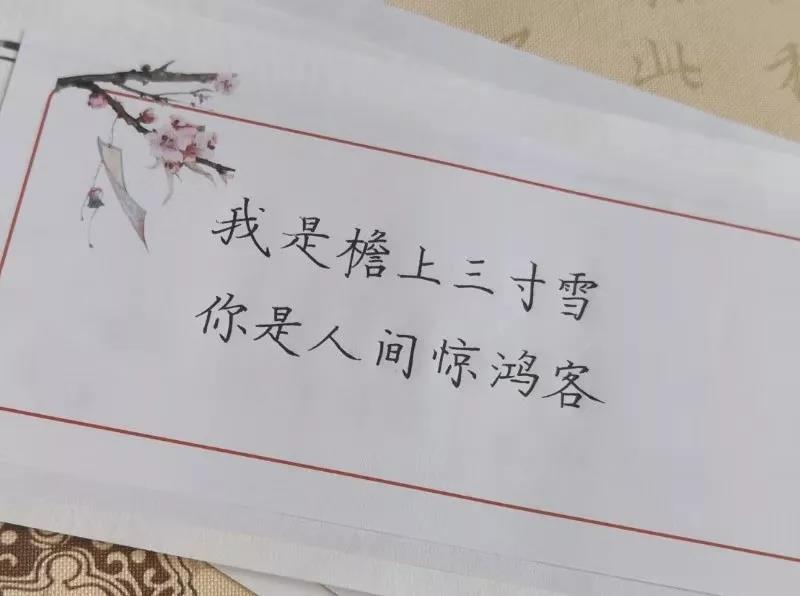 我是檐上三寸雪
你是人间惊鸿客
此